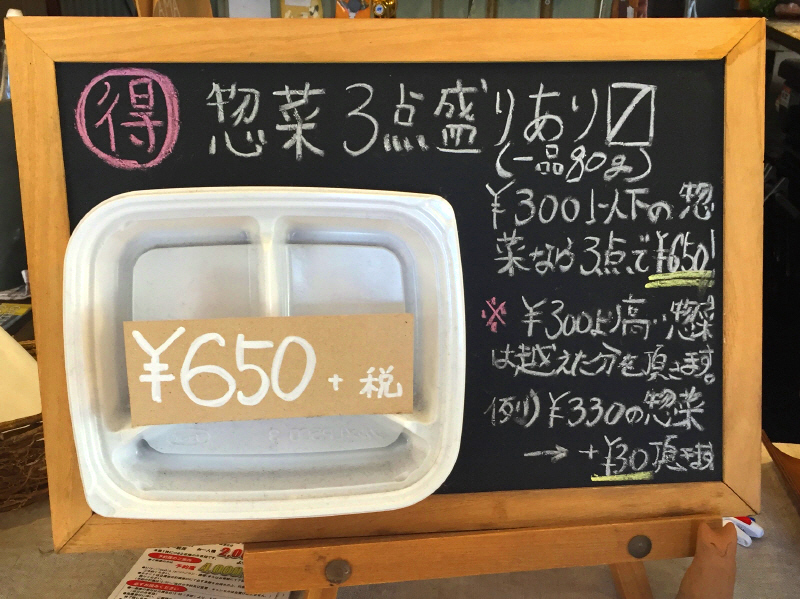 得 惣菜3点盛りあり〼
(一品80g)
¥300以下の惣
菜なら3点で¥650!
※ ¥300より高い惣菜
は越えた分を頂きます。
例)¥330の惣菜
→ +¥30頂きます
¥650 + 税